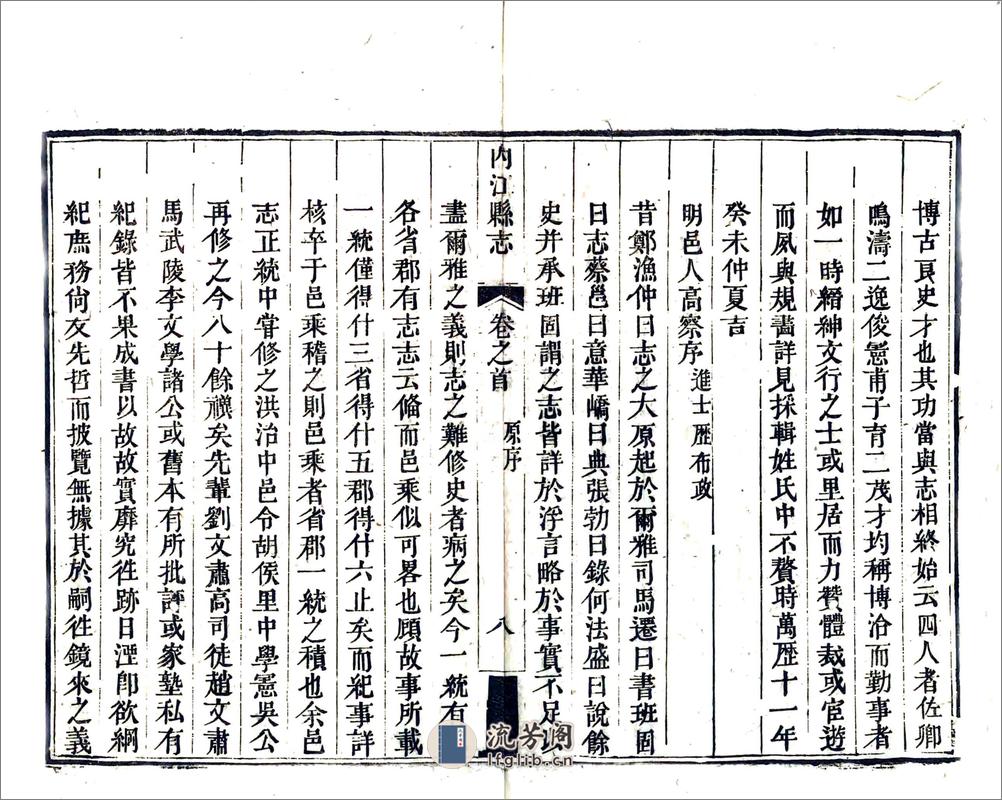 博古良史才也其功當與志相終始云四人者佐卿
鳴濤二逸俊憲甫子育二茂才均稱博洽而勤事者
如一時縉紳文行之士或里居而力贊體裁或宦遊
而夙與規畫詳見採輯姓氏中不贅時萬歷十一年
癸未仲夏吉
明邑人高察序 進士歷布政
昔鄭漁仲曰志之大原起於爾雅司馬遷曰書班固
曰志蔡邕曰意華嶠曰典張勃曰錄何法盛曰說餘
史并承班固謂之志皆詳於浮言略於事實不足以
內江縣志 卷之首 原序 八
盡爾雅之義則志之難修史者病之矣今一統有
各省郡有志志云俻而邑乘似可畧也顧故事所載
一統僅得什三省得什五郡得什六止矣而紀事詳
核卒于邑乘稽之則邑乘者省郡一統之積也余邑
志正統中嘗修之洪治中邑令胡侯里中學憲吳公
再修之今八十餘禩矣先輩劉文肅高司徒趙文肅
馬武陵李文學諸公或舊本有所批評或家塾私有
紀錄皆不果成書以故故實靡究徃跡日湮卽欲綱
紀庶務尙友先哲而披覽無據其於嗣徃鏡來之義
流芳阁
lfglib.cn